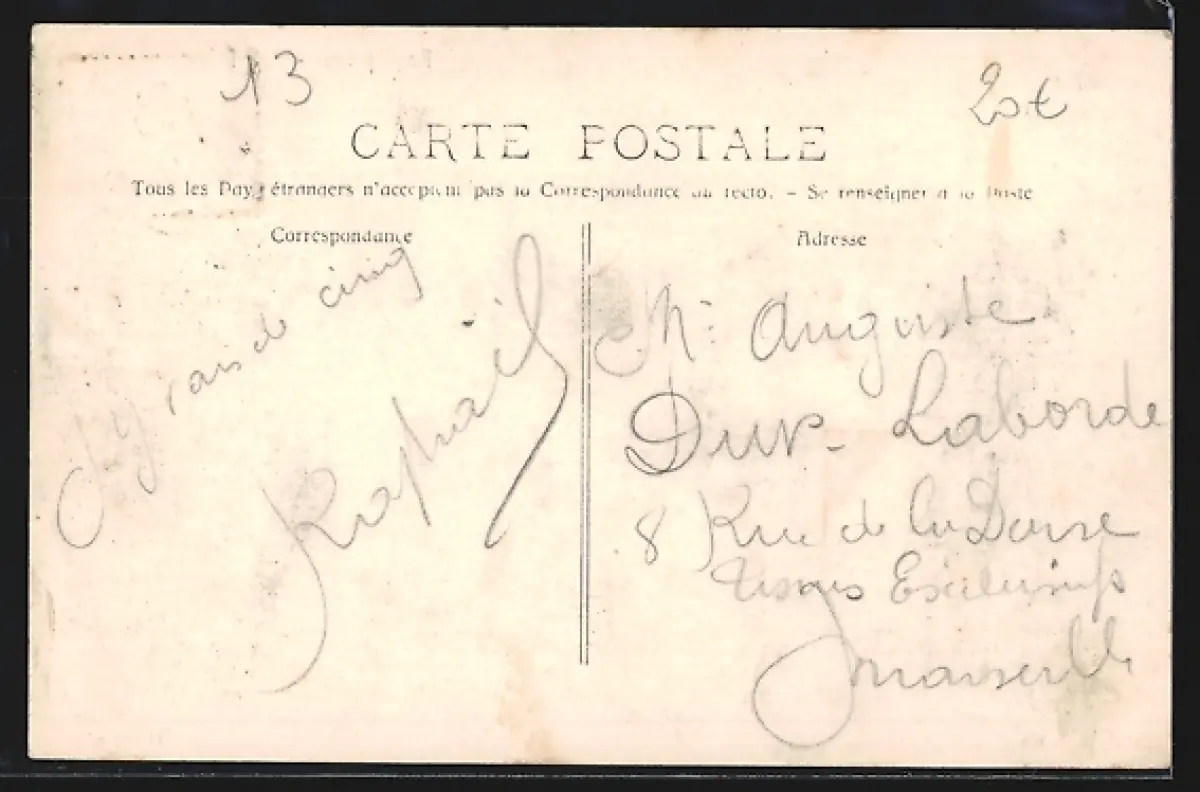 13
20€
CARTE POSTALE
Tous les Pays étrangers n'acceptent pas la Correspondance au recto. - Se renseigner à la Poste
Correspondance
Adresse
cinq
Raphaël
Mr. Auguste
Laborde
8 Rue de la Darse
Tissus Exclusifs
Marseille